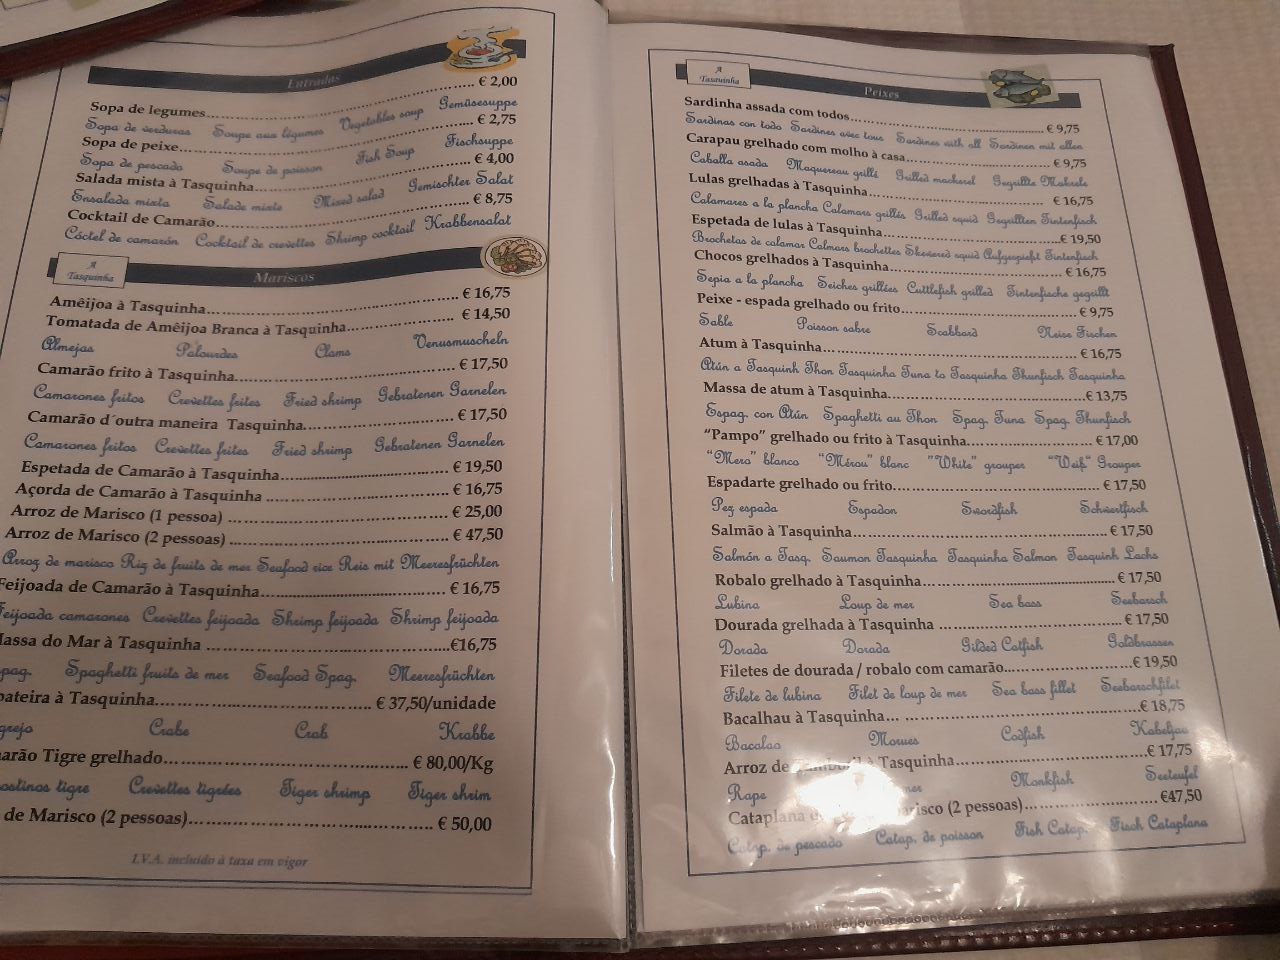 Entradas
Sopa de legumes........ € 2,00
Sopa de verduras Soupe aux légumes Vegetables soup Gemüsesuppe
Sopa de peixe........ € 2,75
Sopa de pescado Soupe de poisson Fish Soup Fischsuppe
Salada mista à Tasquinha........ € 4,00
Ensalada mixta Salade mixte Mixed salad Gemischter Salat
Cocktail de Camarão........ € 8,75
Cóctel de camarón Cocktail de crevettes Shrimp cocktail Krabbensalat
A Tasquinha
Mariscos
Amêijoa à Tasquinha........ € 16,75
Tomatada de Amêijoa Branca à Tasquinha........ € 14,50
Almejas Palourdes Clams Venusmuscheln
Camarão frito à Tasquinha........ € 17,50
Camarones fritos Crevettes frites Fried shrimp Gebratenen Garnelen
Camarão d´outra maneira Tasquinha........ € 17,50
Camarones fritos Crevettes frites Fried shrimp Gebratenen Garnelen
Espetada de Camarão à Tasquinha........ € 19,50
Açorda de Camarão à Tasquinha ........ € 16,75
Arroz de Marisco (1 pessoa) ........ € 25,00
Arroz de Marisco (2 pessoas) ........ € 47,50
Arroz de marisco Riz de fruits de mer Seafood rice Reis mit Meeresfrüchten
Feijoada de Camarão à Tasquinha........ € 16,75
Feijoada camarones Crevettes feijoada Shrimp feijoada Shrimp feijoada
Massa do Mar à Tasquinha ........€16,75
Spaghetti fruits de mer Seafood Spag. Meeresfrüchten
à Tasquinha........ € 37,50/unidade
Crabe Crab Krabbe
Tigre grelhado........ € 80,00/Kg
tigre Crevettes tigrées Tiger shrimp Tiger shrim
de Marisco (2 pessoas)........ € 50,00
I.V.A. incluído à taxa em vigor
A Tasquinha
Peixes
Sardinha assada com todos........ € 9,75
Sardinas con todo Sardines avec tous Sardines with all Sardinen mit allen
Carapau grelhado com molho à casa........ € 9,75
Caballa asada Maquereau grillé Grilled mackerel Gegrillte Makrele
Lulas grelhadas à Tasquinha........ € 16,75
Calamares a la plancha Calamars grillés Grilled squid Gegrillten Tintenfisch
Espetada de lulas à Tasquinha........€ 19,50
Brochetas de calamar Calmars brochettes Skewered squid Aufgespießt Tintenfisch
Chocos grelhados à Tasquinha........ € 16,75
Sepia a la plancha Seiches grillées Cuttlefish grilled Tintenfische gegrillt
Peixe - espada grelhado ou frito........ € 9,75
Sable Poisson sabre Scabbard Fischen
Atum à Tasquinha........ € 16,75
Atún a Tasquinh Thon Tasquinha Tuna to Tasquinha Thunfisch Tasquinha
Massa de atum à Tasquinha........€ 13,75
Espag. con Atún Spaghetti au Thon Spag. Tuna Spag. Thunfisch
“Pampo” grelhado ou frito à Tasquinha........ € 17,00
“Mero” blanco “Mérou” blanc “White” grouper “Weiß” Grouper
Espadarte grelhado ou frito........ € 17,50
Pez espada Espadon Swordfish Schwertfisch
Salmão à Tasquinha........ € 17,50
Salmón a Tasq. Saumon Tasquinha Tasquinha Salmon Tasquinh Lachs
Robalo grelhado à Tasquinha........ € 17,50
Lubina Loup de mer Sea bass Seebarsch
Dourada grelhada à Tasquinha ........ € 17,50
Dorada Dorada Gilded Catfish Goldbrassen
Filetes de dourada / robalo com camarão........€ 19,50
Filete de lubina Filet de loup de mer Sea bass fillet Seebarschfilet
Bacalhau à Tasquinha........€ 18,75
Bacalao Morues Codfish Kabeljau
Arroz de à Tasquinha........€ 17,75
Rape Monkfish Seeteufel
Cataplana (2 pessoas)........€47,50
Catap. de pescado Catap. de poisson Fish Catap. Fisch Cataplana